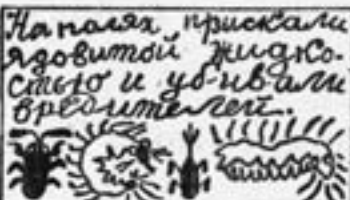 На полях прискали
ядовитой жидко-
стью и убивали
вредителей.